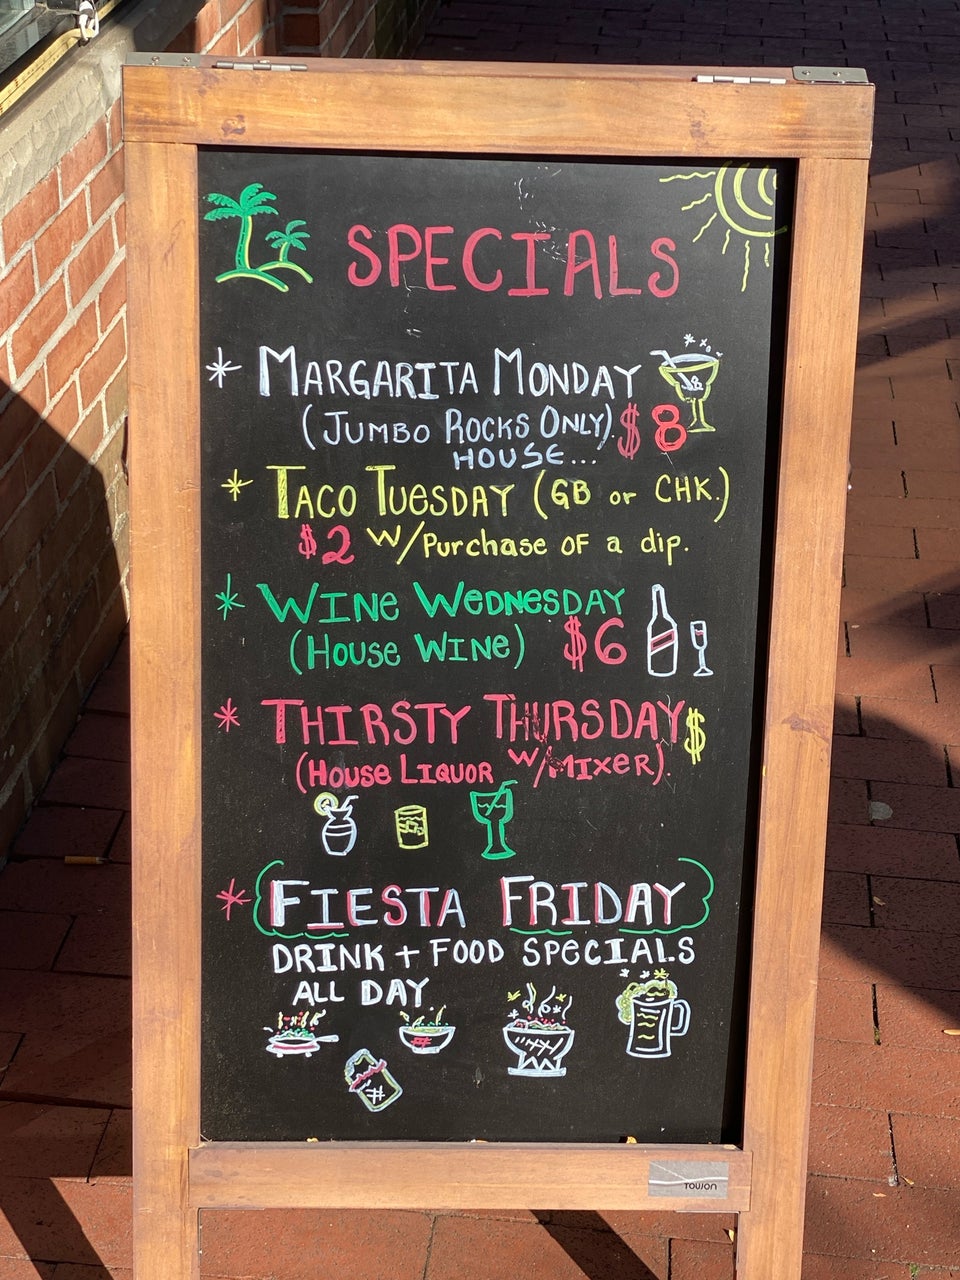 SPECIALS
* MARGARITA MONDAY
(JUMBO ROCKS ONLY) $8
HOUSE...
* TACO TUESDAY (GB or CHK.)
$2 W/Purchase OF a dip.
* WINE WEDNESDAY
(HOUSE WINE) $6
* THIRSTY THURSDAY $
(HOUSE LIQUOR W/MIXER).
* FIESTA FRIDAY
DRINK + FOOD SPECIALS
ALL DAY
TOUJON